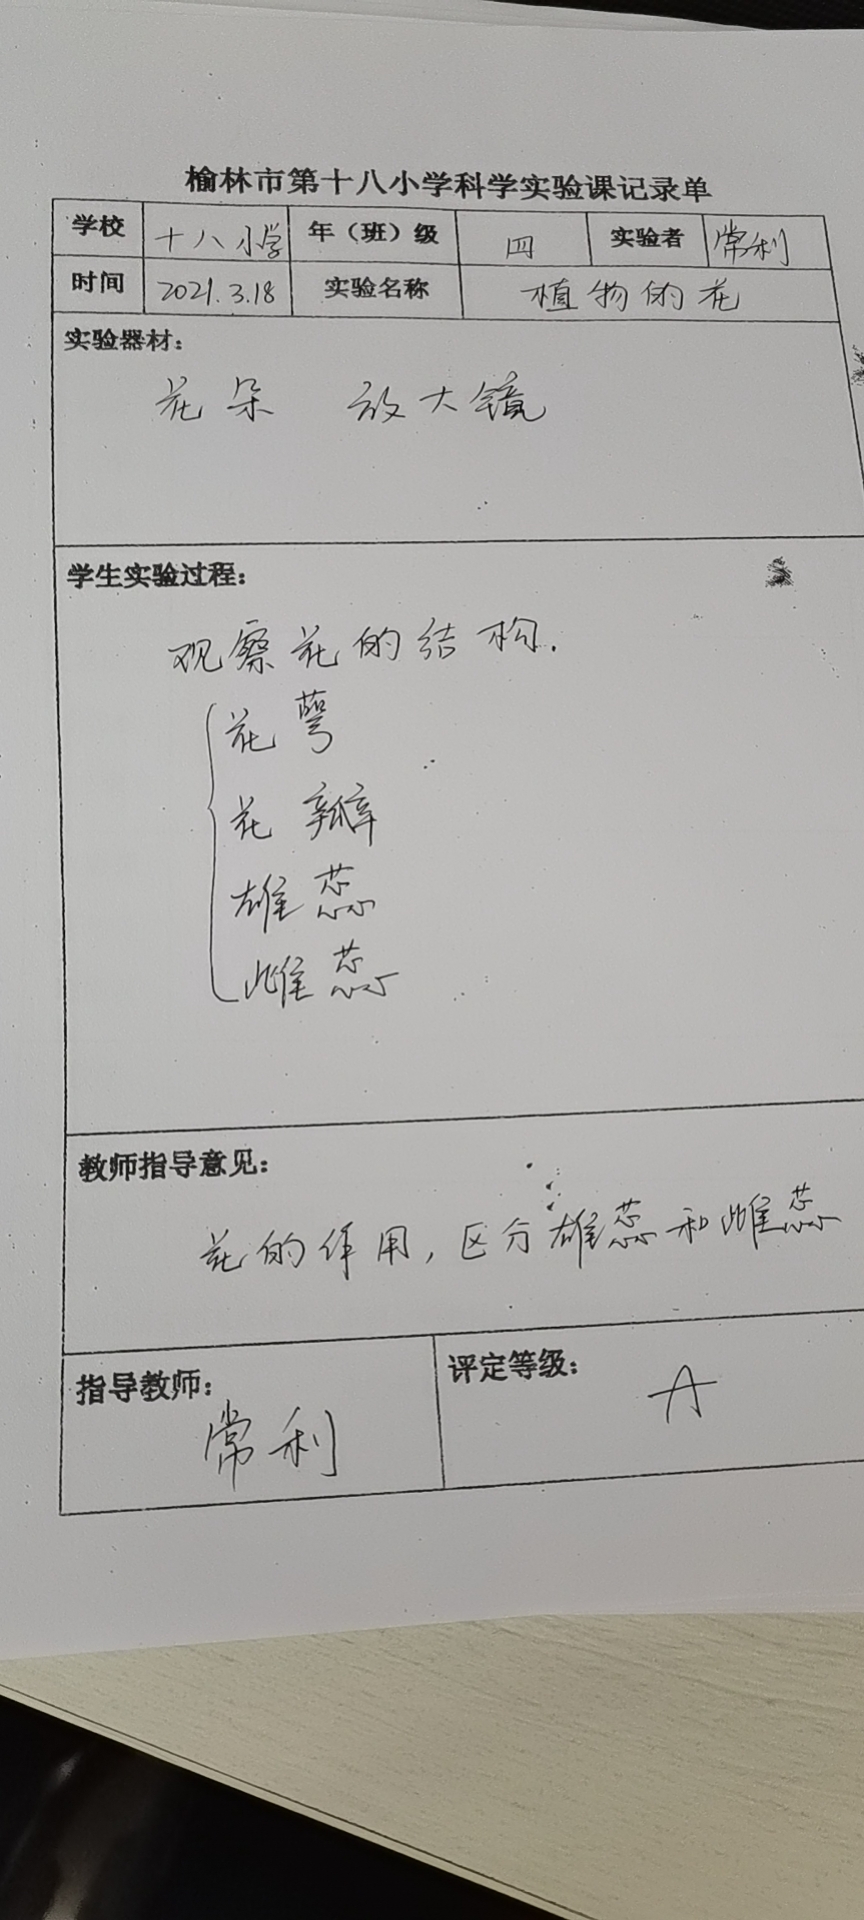 榆林市第十八小学科学实验课记录单
学校 十八小学 年（班）级 四 实验者 常利
时间 2021.3.18 实验名称 植物的花
实验器材：
花朵 放大镜
学生实验过程：
观察花的结构.
花萼
花瓣
雄蕊
雌蕊
教师指导意见：
花的作用，区分雄蕊和雌蕊
指导教师： 评定等级：
常利 A